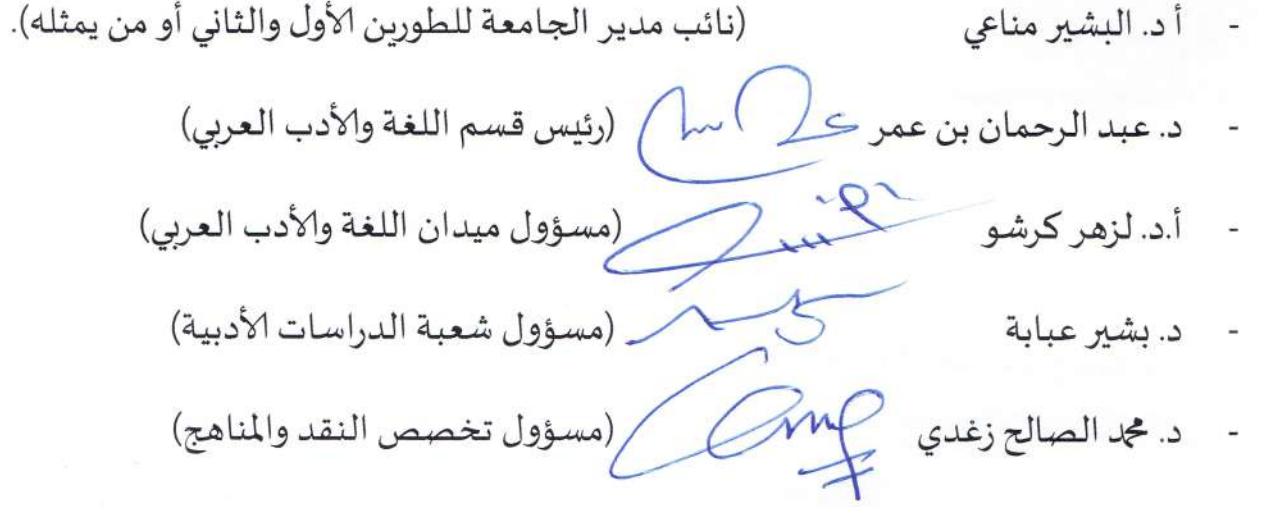 - أ د. البشير مناعي (نائب مدير الجامعة للطورين الأول والثاني أو من يمثله).
- د. عبد الرحمان بن عمر (رئيس قسم اللغة والأدب العربي)
- أ.د. لزهر كرشو (مسؤول ميدان اللغة والأدب العربي)
- د. بشير عبابة (مسؤول شعبة الدراسات الأدبية)
- د. محمد الصالح زغدي (مسؤول تخصص النقد والمناهج)